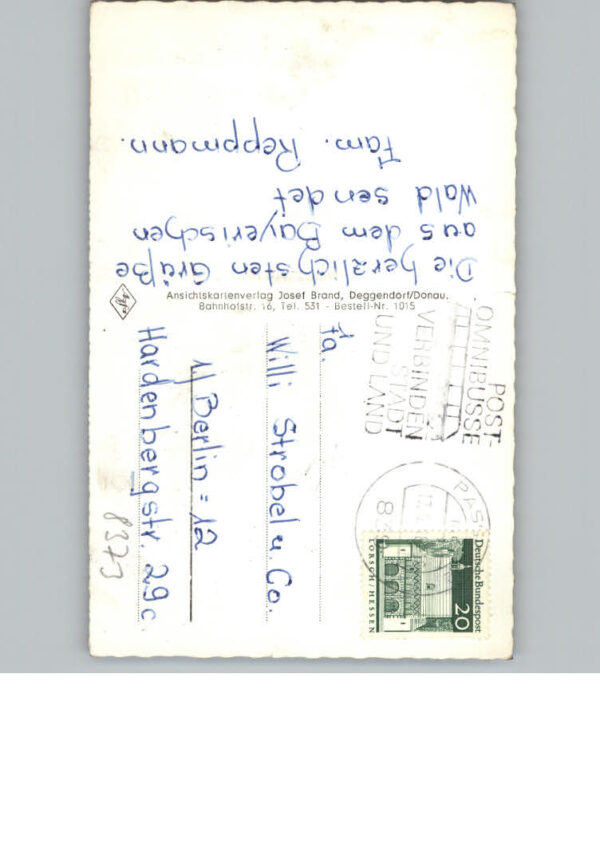 Die herzlichsten Grüße
aus dem Bayerischen
Wald sendet
Fam. Reppmann.
Ansichtskartenverlag Josef Brand, Deggendorf/Donau.
Bahnhofstr. 16, Tel. 531 - Bestell-Nr. 1015
Agfa
POST-
OMNIBUSSE
VERBINDEN
STADT
UND LAND
Deutsche Bundespost
20
LORSCH/HESSEN
Fa.
Willi Strobel u. Co.
1/ Berlin = 12
Hardenbergstr. 29c.
8373